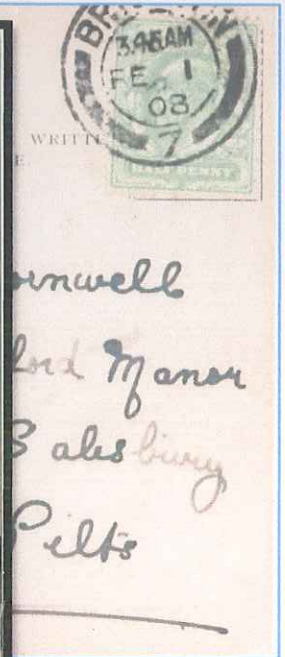 3.45AM
FE 1
08
7
HALF PENNY
WRITTE
E.
ornwell
ford Manor
Salesbiury
Wilts